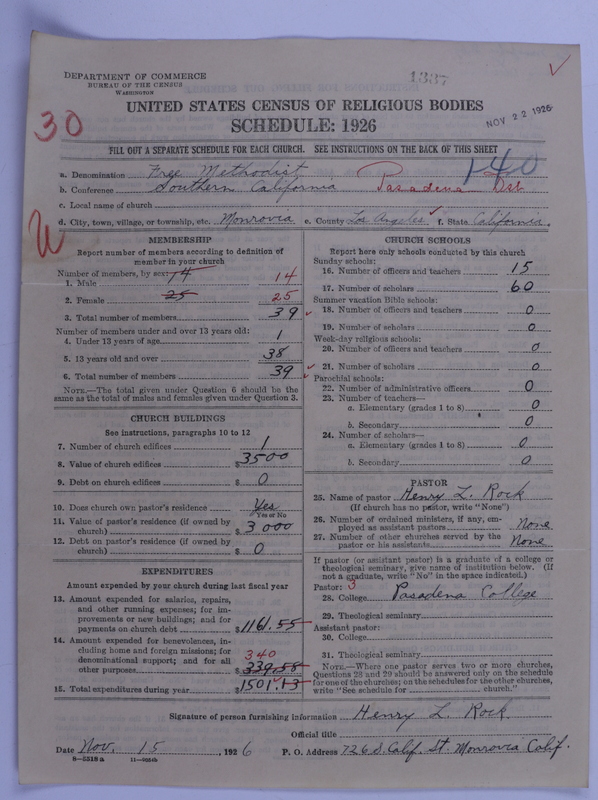 1337
DEPARTMENT OF COMMERCE
BUREAU OF THE CENSUS
WASHINGTON
UNITED STATES CENSUS OF RELIGIOUS BODIES
SCHEDULE: 1926
NOV 22 1926
30
FILL OUT A SEPARATE SCHEDULE FOR EACH CHURCH. SEE INSTRUCTIONS ON THE BACK OF THIS SHEET
140
a. Denomination Free Methodist
b. Conference Southern California Pasadena Dst
c. Local name of church
d. City, town, village, or township, etc. Monrovia e. County Los Angeles f. State California.
MEMBERSHIP
Report number of members according to definition of
member in your church
Number of members, by sex: 14
1. Male 14
2. Female 25 25
3. Total number of members 39
Number of members under and over 13 years old:
4. Under 13 years of age 1
5. 13 years old and over 38
6. Total number of members 39
NOTE.—The total given under Question 6 should be the
same as the total of males and females given under Question 3.
CHURCH BUILDINGS
See instructions, paragraphs 10 to 12
7. Number of church edifices 1
8. Value of church edifices $3500
9. Debt on church edifices $ 0
10. Does church own pastor's residence? Yes
Yes or No
11. Value of pastor's residence (if owned by
church) $ 3000
12. Debt on pastor's residence (if owned by
church) $ 0
EXPENDITURES
Amount expended by your church during last fiscal year
13. Amount expended for salaries, repairs,
and other running expenses; for im-
provements or new buildings; and for
payments on church debt $1161.55
14. Amount expended for benevolences, in-
cluding home and foreign missions; for
denominational support; and for all
other purposes 340 339.58
15. Total expenditures during year $1501.13
CHURCH SCHOOLS
Report here only schools conducted by this church
Sunday schools:
16. Number of officers and teachers 15
17. Number of scholars 60
Summer vacation Bible schools:
18. Number of officers and teachers 0
19. Number of scholars 0
Week-day religious schools:
20. Number of officers and teachers 0
21. Number of scholars 0
Parochial schools:
22. Number of administrative officers 0
23. Number of teachers—
a. Elementary (grades 1 to 8) 0
b. Secondary 0
24. Number of scholars—
a. Elementary (grades 1 to 8) 0
b. Secondary 0
PASTOR
25. Name of pastor Henry L. Rock
(If church has no pastor, write "None")
26. Number of ordained ministers, if any, em-
ployed as assistant pastors None
27. Number of other churches served by the
pastor or his assistants None
If pastor (or assistant pastor) is a graduate of a college or
theological seminary, give name of institution below. (If
not a graduate, write "No" in the space indicated.)
Pastor: 3
28. College Pasadena College
29. Theological seminary
Assistant pastor:
30. College
31. Theological seminary
NOTE.—Where one pastor serves two or more churches,
Questions 28 and 29 should be answered only on the schedule
for one of the churches; on the schedules for the other churches,
write "See schedule for church."
Signature of person furnishing information Henry L. Rock
Official title
Date Nov. 15, 1926 P. O. Address 726 S. Calif. St. Monrovia Calif.
8—5318a 11—9264b